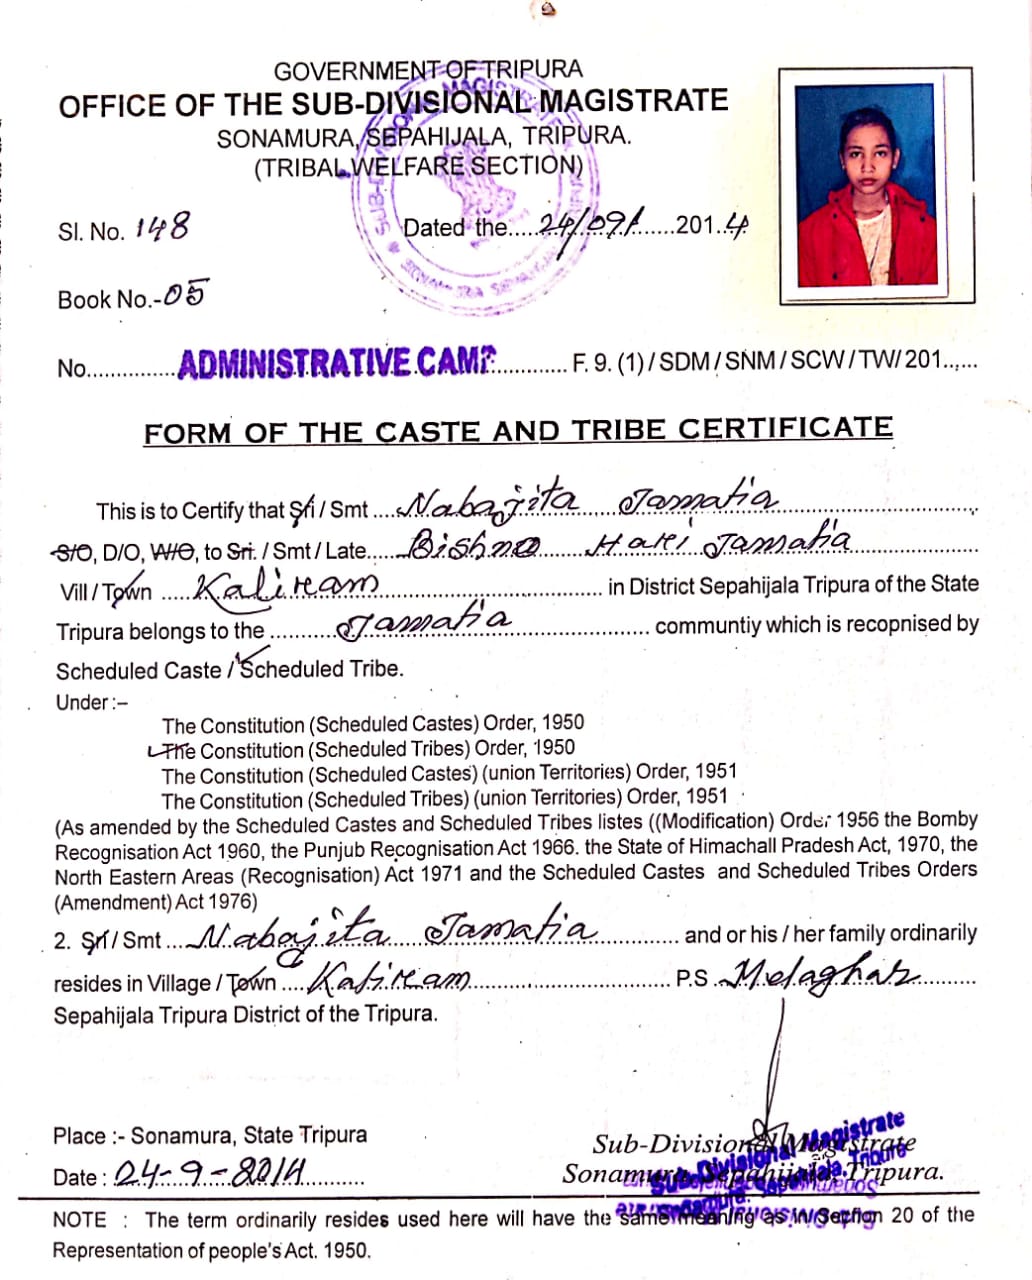 GOVERNMENT OF TRIPURA
OFFICE OF THE SUB-DIVISIONAL MAGISTRATE
SONAMURA, SEPAHIJALA, TRIPURA.
(TRIBAL WELFARE SECTION)
Sl. No. 148 Dated the.....24/09/.......2014
Book No.-05
No...............ADMINISTRATIVE CAMP............ F. 9. (1) / SDM / SNM / SCW / TW/ 201......
FORM OF THE CASTE AND TRIBE CERTIFICATE
This is to Certify that Sri / Smt ....Nabajita Jamatia
S/O, D/O, W/O, to Sri. / Smt / Late......Bishno Hari Jamatia
Vill / Town .....Kaliram..... in District Sepahijala Tripura of the State
Tripura belongs to the ..........Jamatia..... communtiy which is recopnised by
Scheduled Caste / Scheduled Tribe.
Under :–
The Constitution (Scheduled Castes) Order, 1950
The Constitution (Scheduled Tribes) Order, 1950
The Constitution (Scheduled Castes) (union Territories) Order, 1951
The Constitution (Scheduled Tribes) (union Territories) Order, 1951
(As amended by the Scheduled Castes and Scheduled Tribes listes ((Modification) Order 1956 the Bomby
Recognisation Act 1960, the Punjub Recognisation Act 1966. the State of Himachall Pradesh Act, 1970, the
North Eastern Areas (Recognisation) Act 1971 and the Scheduled Castes and Scheduled Tribes Orders
(Amendment) Act 1976)
2. Sri / Smt ....Nabajita Jamatia..... and or his / her family ordinarily
resides in Village / Town ....Kaliram..... P.S .Melaghar
Sepahijala Tripura District of the Tripura.
Place :- Sonamura, State Tripura
Date : 24-9-2014
Sub-Divisional Magistrate
Sonamura, Sepahijala, Tripura.
Sub-Divisional Magistrate
Sonamura, Sepahijala, Tripura
NOTE : The term ordinarily resides used here will have the same meaning as in Section 20 of the
Representation of people's Act. 1950.